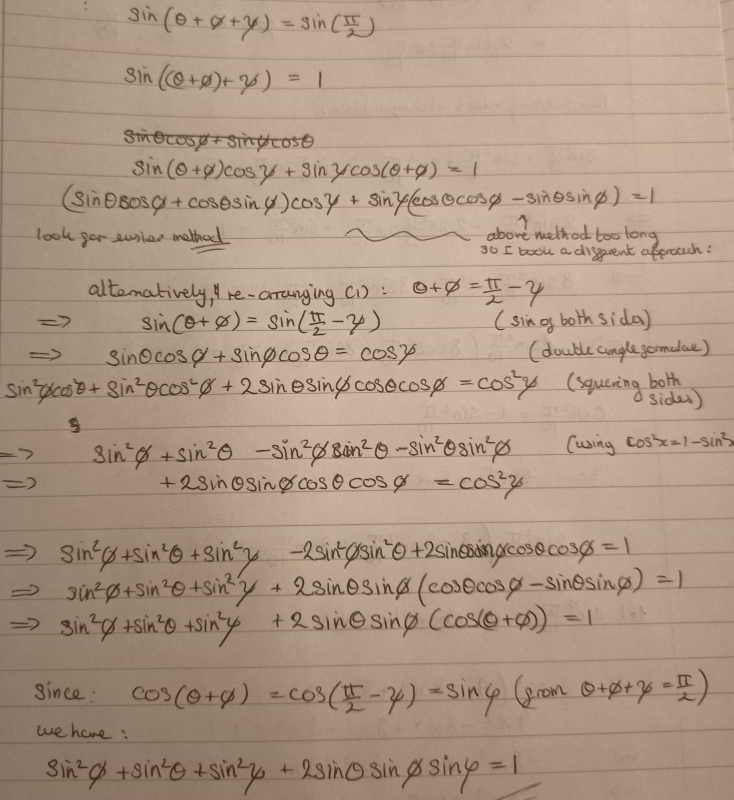 :
sin(θ+ø+ψ) = sin(π/2)
sin((θ+ø)+ψ) = 1
sinθcosø + sinøcosθ
sin(θ+ø)cosψ + sinψcos(θ+ø) = 1
(sinθcosø + cosθsinø)cosψ + sinψ(cosθcosø - sinθsinø) = 1
look for easier method ↑ above method too long
so I took a different approach:
alternatively, re-arranging (1): θ+ø = π/2 - ψ
=> sin(θ+ø) = sin(π/2 - ψ) (sin of both sides)
=> sinθcosø + sinøcosθ = cosψ (double angle formulae)
sin²øcos²θ + sin²θcos²ø + 2sinθsinøcosθcosø = cos²ψ (squaring both
sides)
=> sin²ø + sin²θ - sin²øsin²θ - sin²θsin²ø (using cos²x = 1-sin²x
=> + 2sinθsinøcosθcosø = cos²ψ
=> sin²ø + sin²θ + sin²ψ - 2sin²øsin²θ + 2sinθsinøcosθcosø = 1
=> sin²ø + sin²θ + sin²ψ + 2sinθsinø(cosθcosø - sinθsinø) = 1
=> sin²ø + sin²θ + sin²ψ + 2sinθsinø(cos(θ+ø)) = 1
Since: cos(θ+ø) = cos(π/2 - ψ) = sinψ (from θ+ø+ψ = π/2)
we have:
sin²ø + sin²θ + sin²ψ + 2sinθsinøsinψ = 1